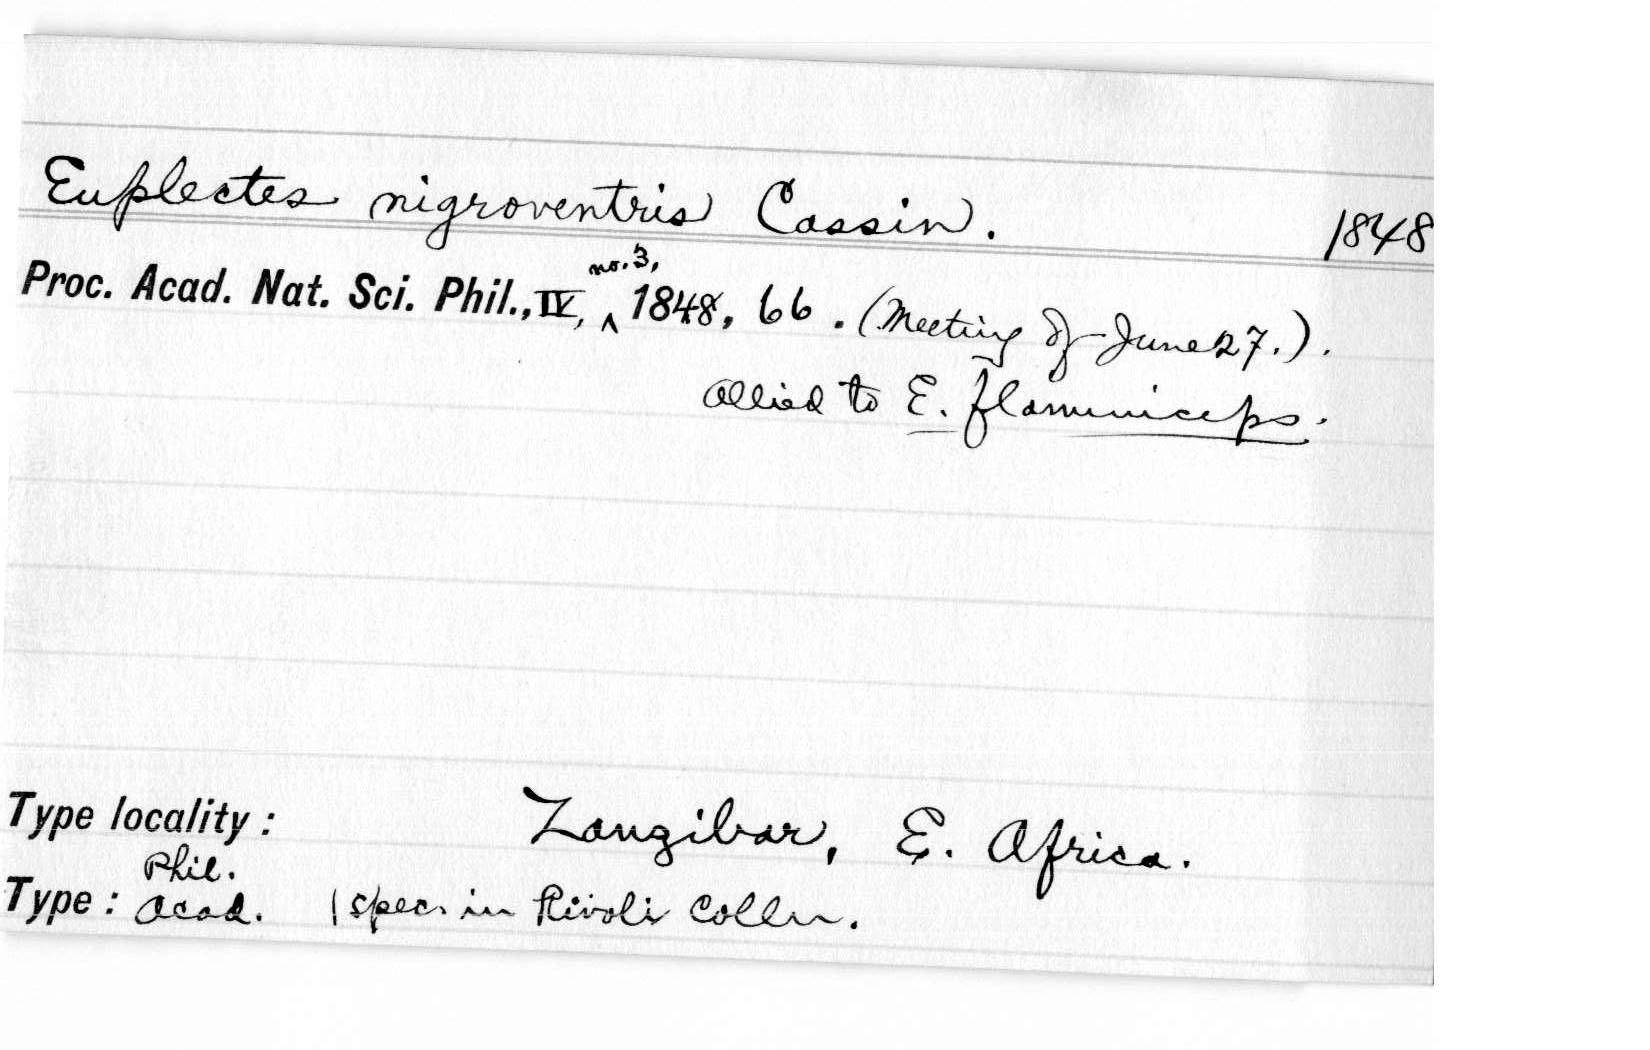 Euplectes nigroventris Cassin. 1848
Proc. Acad. Nat. Sci. Phil., IV, no. 3, 1848, 66. (Meeting of June 27.).
Allied to E. flammiceps.
Type locality: Zanzibar, E. Africa.
Phil.
Type: Acad. 1 spec. in Rivoli Colln.